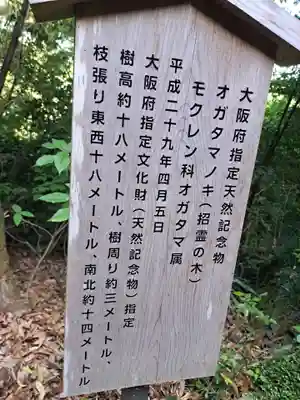 大阪府指定天然記念物
オガタマノキ(招霊の木)
モクレン科オガタマ属
平成二十九年四月五日
大阪府指定文化財(天然記念物)指定
樹高約十八メートル、樹周り約三メートル、
枝張り東西十八メートル、南北約十四メートル